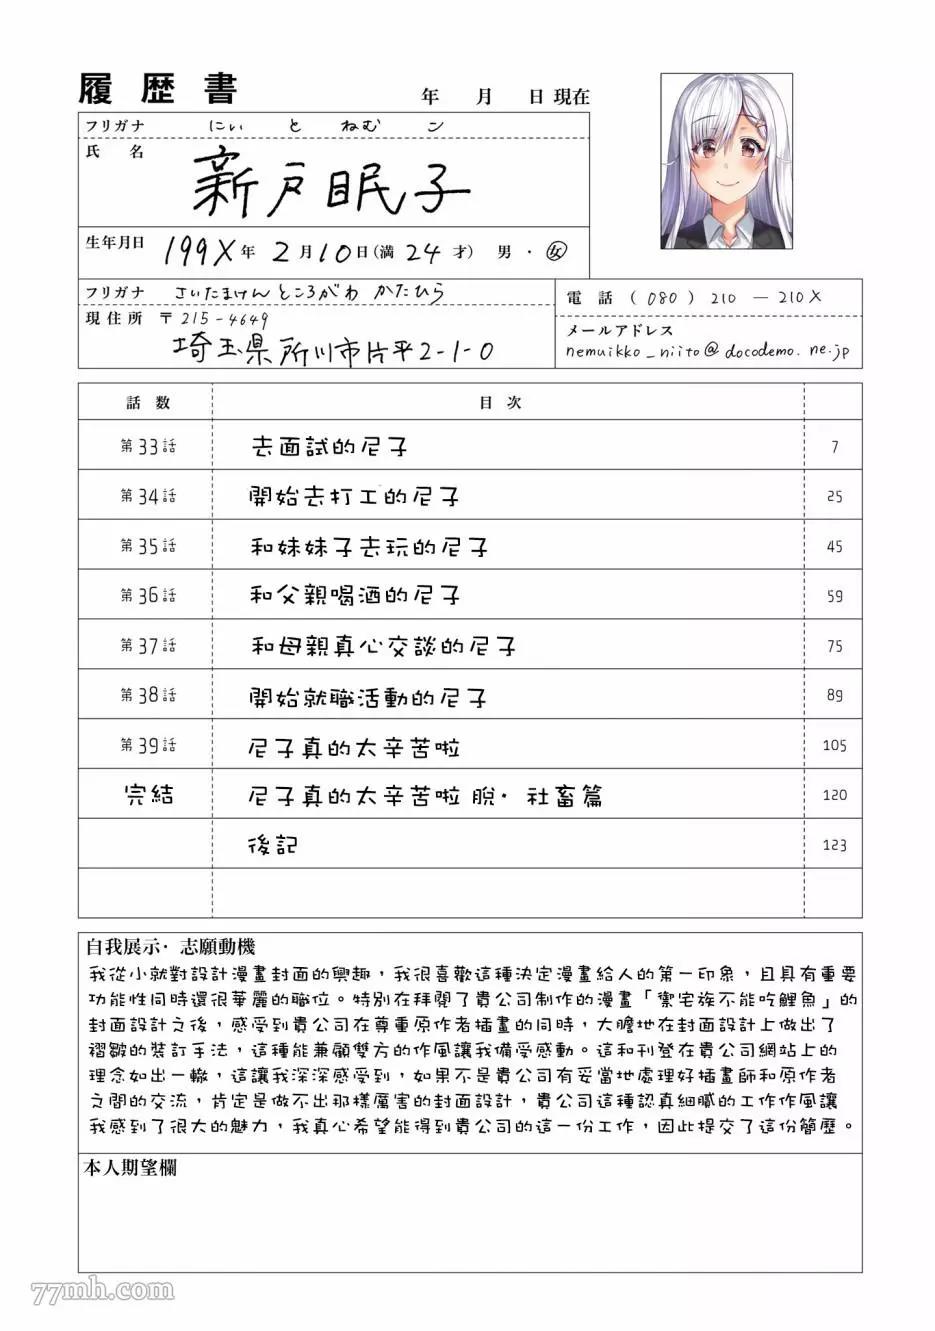 履歴書
年 月 日 現在
フリガナ にい と ねむ コ
氏 名 新戸眠子
生年月日 199X 年 2 月 10 日 (満 24 才) 男 ・ 女
フリガナ さいたまけんところがわ かたひら
現住所 〒 215-4649
埼玉県所川市片平2-1-0
電 話 (080) 210 — 210X
メールアドレス
nemuikko_niito@docodemo.ne.jp
話 数 目 次
第33話 去面試的尼子 7
第34話 開始去打工的尼子 25
第35話 和妹妹子去玩的尼子 45
第36話 和父親喝酒的尼子 59
第37話 和母親真心交談的尼子 75
第38話 開始就職活動的尼子 89
第39話 尼子真的太辛苦啦 105
完結 尼子真的太辛苦啦 脫・社畜篇 120
後記 123
自我展示・志願動機
我從小就對設計漫畫封面的興趣，我很喜歡這種決定漫畫給人的第一印象，且具有重要
功能性同時還很華麗的職位。特別在拜閱了貴公司制作的漫畫「禦宅族不能吃鯉魚」的
封面設計之後，感受到貴公司在尊重原作者插畫的同時，大膽地在封面設計上做出了
褶皺的裝訂手法，這種能兼顧雙方的作風讓我備受感動。這和刊登在貴公司網站上的
理念如出一轍，這讓我深深感受到，如果不是貴公司有妥當地處理好插畫師和原作者
之間的交流，肯定是做不出那樣厲害的封面設計，貴公司這種認真細膩的工作作風讓
我感到了很大的魅力，我真心希望能得到貴公司的這一份工作，因此提交了這份簡歷。
本人期望欄
77mh.com